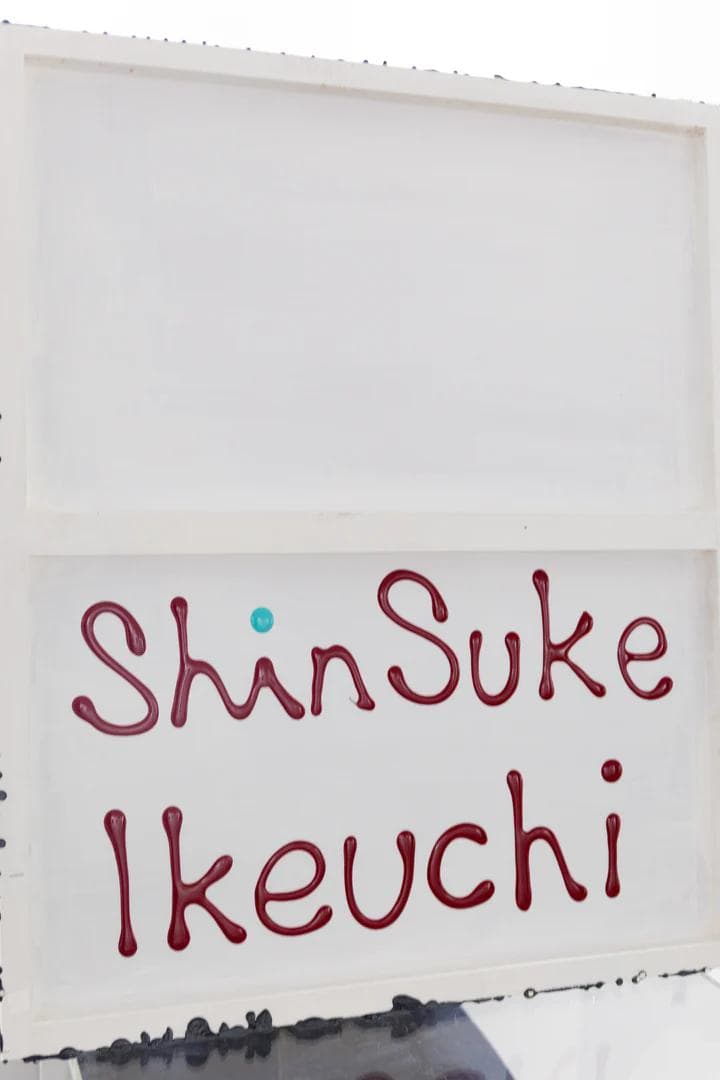 ShinSuke
Ikeuchi